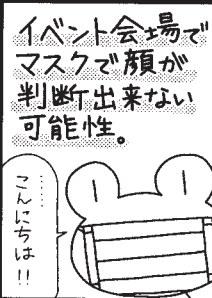 イベント会場で
マスクで顔が
判断出来ない
可能性。
……
こんにちは!!